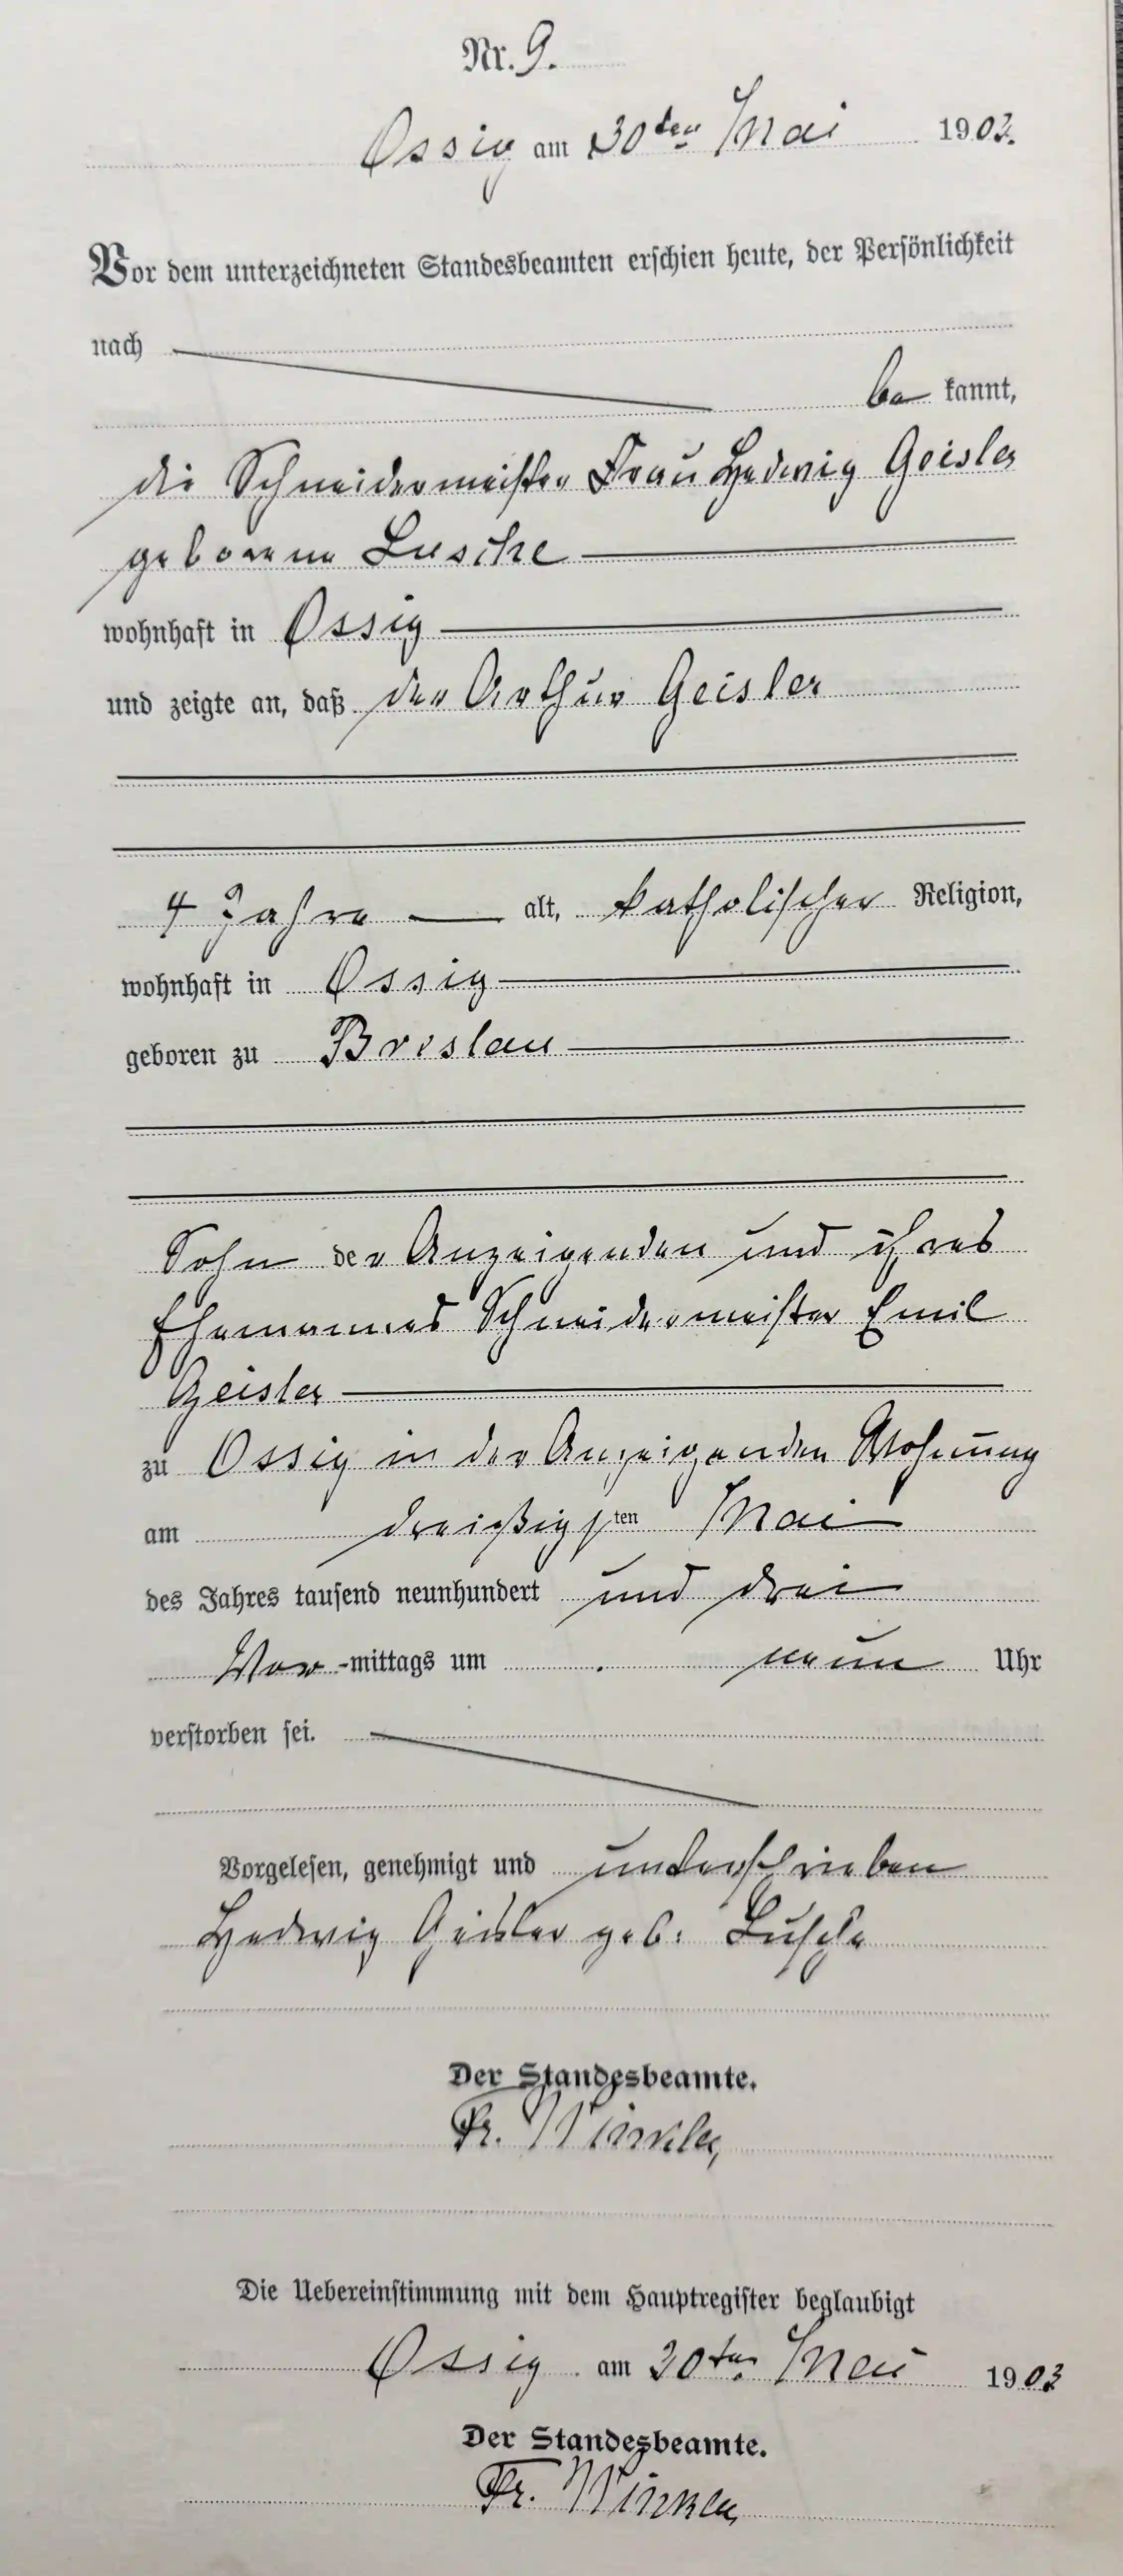 Nr. 9.
Ossig am 30ten Mai 1903.
Vor dem unterzeichneten Standesbeamten erschien heute, der Persönlichkeit
nach
be kannt,
die Schneidermeister Frau Hedwig Geisler
geborene Lusche
wohnhaft in Ossig
und zeigte an, daß der Arthur Geisler
4 Jahre alt, katholischer Religion,
wohnhaft in Ossig
geboren zu Breslau
Sohn der Anzeigenden und ihres
Ehemannes Schneidermeister Emil
Geisler
zu Ossig in der Anzeigenden Wohnung
am dreißigsten Mai
des Jahres tausend neunhundert und drei
Vor-mittags um neun Uhr
verstorben sei.
Vorgelesen, genehmigt und unterschrieben
Hedwig Geisler geb. Lusche
Der Standesbeamte.
Fr. Winkler
Die Uebereinstimmung mit dem Hauptregister beglaubigt
Ossig am 30ten Mai 1903
Der Standesbeamte.
Fr. Winkler